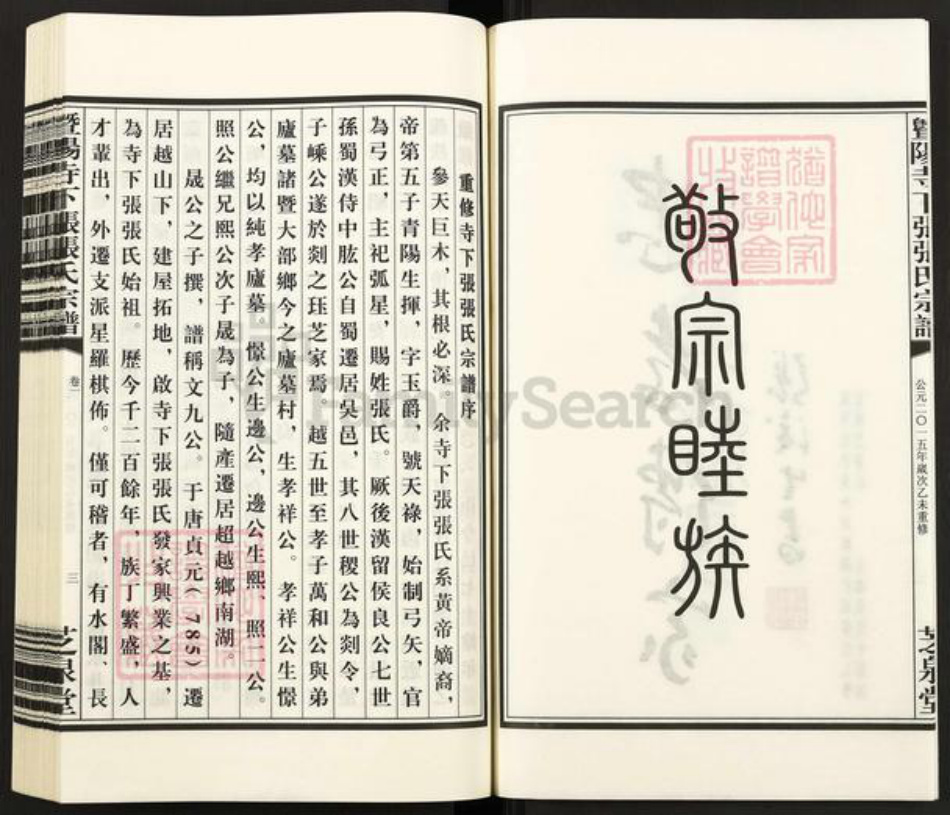 暨陽寺下張張氏宗譜
公元二〇一五年歲次乙未重修
芝泉堂
敬宗睦族
猶他家譜學會收藏
重修寺下張張氏宗譜序
參天巨木，其根必深，余寺下張張氏系黃帝嫡裔，
帝第五子青陽生揮，字玉爵，號天祿，始制弓矢，官
為弓正，主祀弧星，賜姓張氏。厥後漢留侯良公七世
孫蜀漢侍中肱公自蜀遷居吳邑，其八世稷公為剡令，
子嵊公遂於剡之珏芝家焉。越五世至孝子萬和公與弟
廬墓諸暨大部鄉今之廬墓村，生孝祥公。孝祥公生憬
公，均以純孝廬墓。憬公生邊公，邊公生熙、照二公。
照公繼兄熙公次子晟為子，隨產遷居超越鄉南湖。
晟公之子撰，譜稱文九公。于唐貞元（785）遷
居越山下，建屋拓地，啟寺下張張氏發家興業之基，
為寺下張張氏始祖。歷今千二百餘年，族丁繁盛，人
才輩出，外遷支派星羅棋佈。僅可稽者，有水閣、長
暨陽寺下張張氏宗譜
卷一
三
芝泉堂
FamilySearch